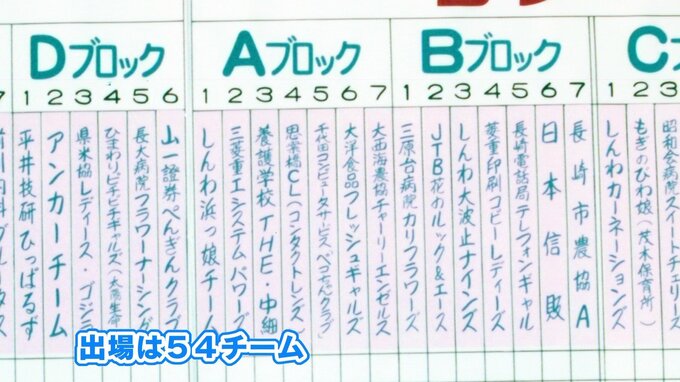 Dブロック
Aブロック
Bブロック
C
7
1 2 3 4 5 6
1 2 3 4 5 6 7
1 2 3 4 5 6 7
1 2 3
平井技研ひっぱるず
アンカーチーム
県米協レディース・ゴジラ
ひまわりピチピチギャルズ
長大病院フラワーナーシング
山一證券ぺんぎんクラブ
しんわ浜っ娘チーム
三菱重工システムパワーズ
養護学校THE・中細
思案橋CL(コンタクトレンズ)
千代田コンピュータサービス
大洋食品フレッシュギャルズ
大西海農協チャーリーエンゼルス
三原台病院カリフラワーズ
JTB花のルック&エース
しんわ大波止ナインズ
菱重印刷コピーレディーズ
長崎電話局テレフォンギャル
日本信販
長崎市農協A
しんわカーネーションズ
もぎのびわ娘(茂木保育所)
昭和会病院スイートチェリーズ
出場は54チーム